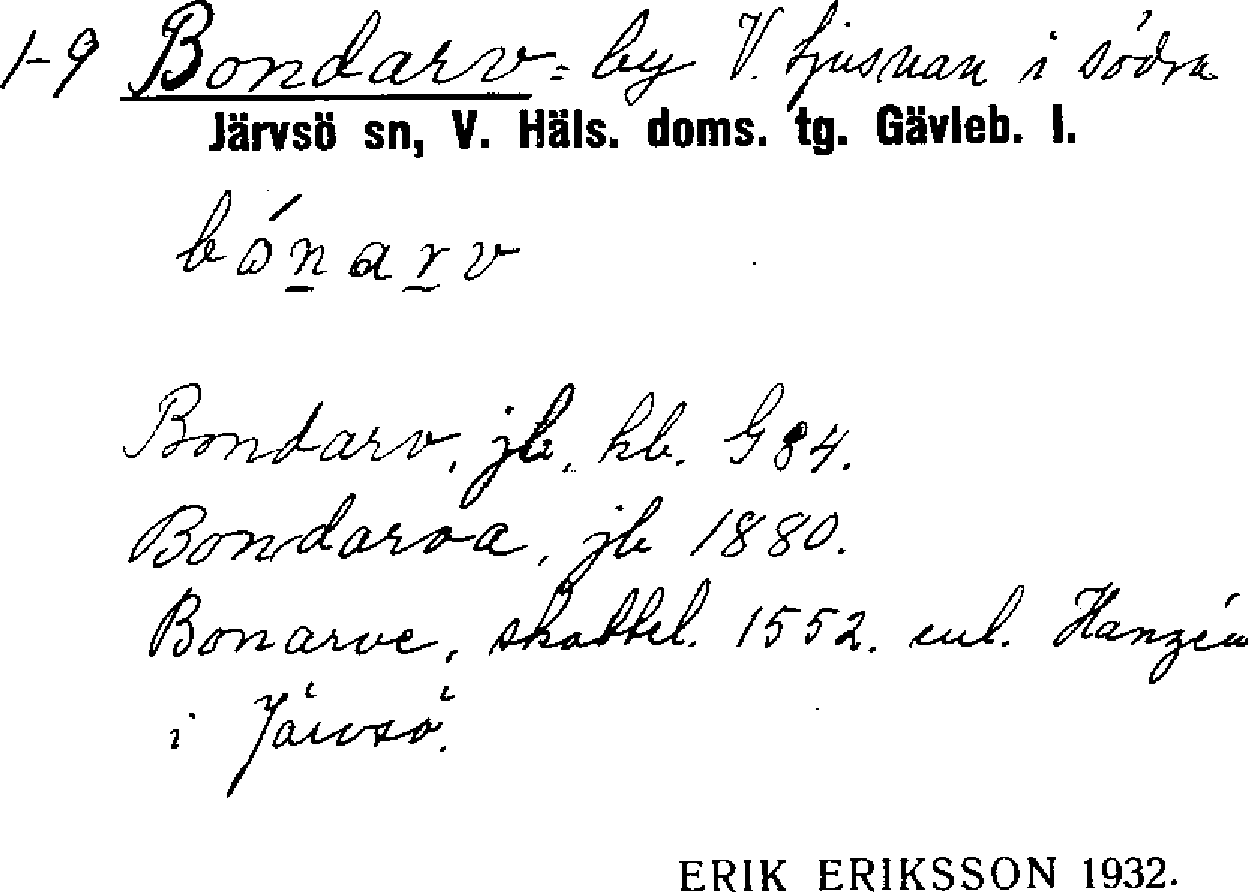 1-9 Bondarv = by V. Ljusnan i södra
Järvsö sn, V. Häls. doms. tg. Gävleb. l.
bónarv
Bondarv, jb, kb. G84.
Bondarva, jb 1880.
Bonarve, skattel. 1552. enl. Hanzén
i Järvsö.
ERIK ERIKSSON 1932.